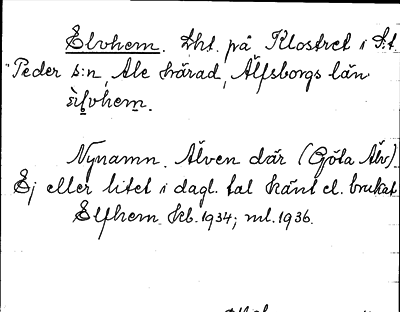 Elvhem. Lht. på Klostret i S:t
Peder s:n, Ale härad, Älfsborgs län
èl̥vhem.
Nynamn. Älven där (Göta Älv).
Ej eller litet i dagl. tal känt el. brukat
Elfhem kb. 1934; ml. 1936.